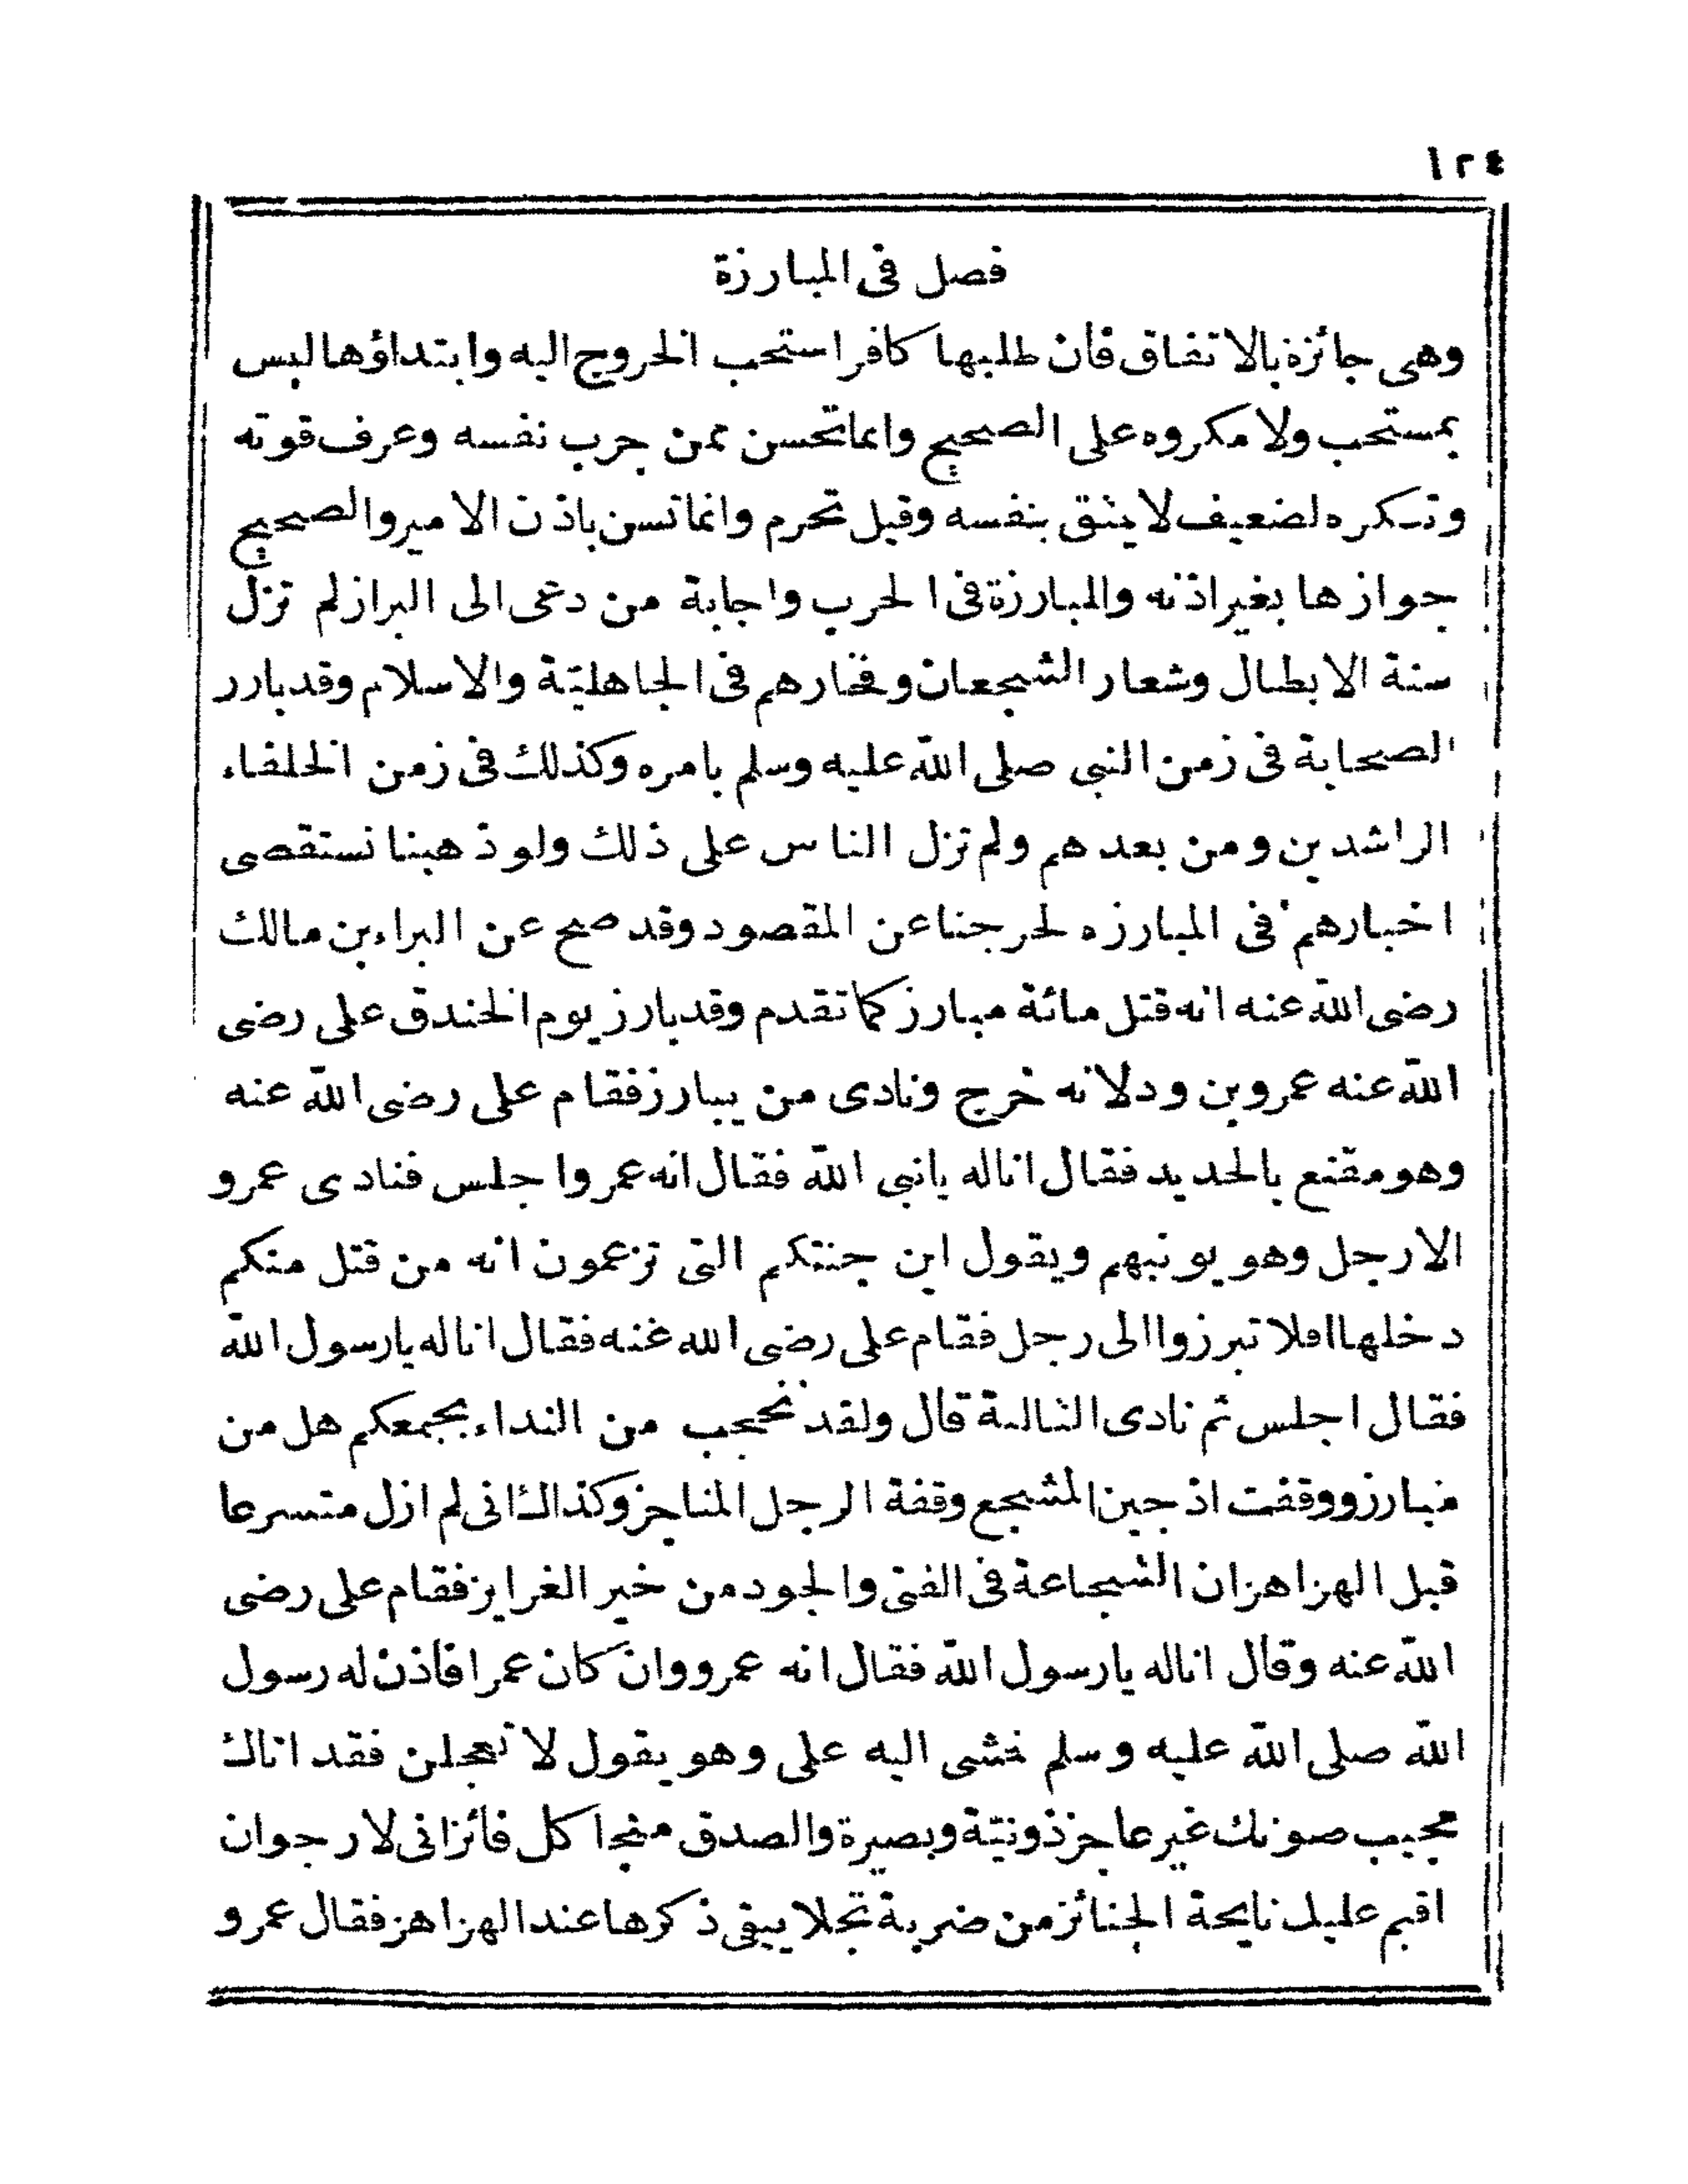 ١٢٤
فصل فى المبارزة
وهى جائزة بالاتفاق فأن طلبها كافر استحب الخروج اليه وابتداؤها ليس
بمستحب ولا مكروه على الصحيح وانما تحسن ممن جرب نفسه وعرف قوته
وتكره لضعيف لا يثق بنفسه وقيل تحرم وانما تسن باذن الامير والصحيح
جوازها بغير اذنه والمبارزة فى الحرب واجابة من دعى الى البراز لم تزل
سنة الابطال وشعار الشجعان وفخارهم فى الجاهليّة والاسلام وقد بارز
الصحابة فى زمن النبى صلى الله عليه وسلم بامره وكذلك فى زمن الخلفاء
الراشدين ومن بعدهم ولم تزل الناس على ذلك ولو ذهبنا نستقصى
اخبارهم فى المبارزه لخرجنا عن المقصود وقد صح عن البراء بن مالك
رضى الله عنه انه قتل مائة مبارز كما تقدم وقد بارز يوم الخندق على رضى
الله عنه عمرو بن ود لانه خرج ونادى من يبارز فقام على رضى الله عنه
وهو مقنع بالحديد فقال انا له يا نبى الله فقال انه عمرو اجلس فنادى عمرو
الا رجل وهو يونبهم ويقول اين جنتكم التى تزعمون انه من قتل منكم
دخلها افلا تبرزوا الى رجل فقام على رضى الله عنه فقال انا له يا رسول الله
فقال اجلس ثم نادى الثالثة قال ولقد نححب من النداء بجمعكم هل من
مبارز ووقفت اذ جبن المشجع وقفة الرجل المناجز وكذاك انى لم ازل متسرعا
قبل الهزاهز ان الشجاعة فى الفتى والجود من خير الغرايز فقام على رضى
الله عنه وقال انا له يا رسول الله فقال انه عمرو وان كان عمرا فأذن له رسول
الله صلى الله عليه وسلم فمشى اليه على وهو يقول لا تعجلن فقد اتاك
مجيب صوتك غير عاجز ذو نيّة وبصيرة والصدق منجا كل فائز انى لارجو ان
اقيم عليك نايحة الجنائز من ضربة نجلا يبقى ذكرها عند الهزاهز فقال عمرو